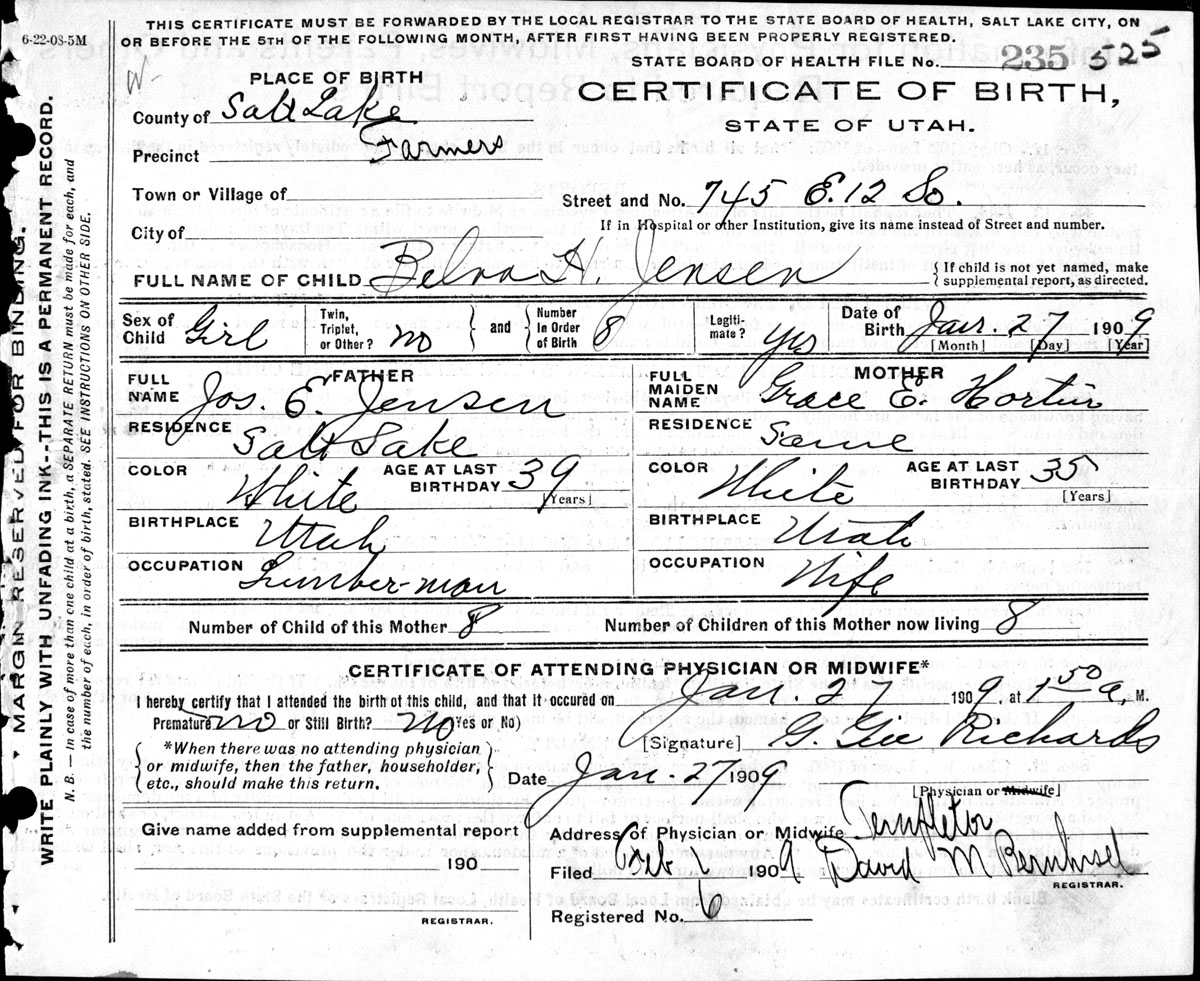 THIS CERTIFICATE MUST BE FORWARDED BY THE LOCAL REGISTRAR TO THE STATE BOARD OF HEALTH, SALT LAKE CITY, ON
6-22-08-5M OR BEFORE THE 5TH OF THE FOLLOWING MONTH, AFTER FIRST HAVING BEEN PROPERLY REGISTERED.
STATE BOARD OF HEALTH FILE No. 235 525
W-
PLACE OF BIRTH
CERTIFICATE OF BIRTH,
County of Salt Lake
STATE OF UTAH.
Precinct Farmers
Town or Village of
Street and No. 745 E. 12 So.
City of
If in Hospital or other Institution, give its name instead of Street and number.
FULL NAME OF CHILD Belva H. Jensen {If child is not yet named, make supplemental report, as directed.
Sex of Child Girl Twin, Triplet, or Other? no } and { Number In Order of Birth 8 Legiti-mate? yes Date of Birth Jan. 27 1909
[Month] [Day] [Year]
FATHER
MOTHER
FULL NAME Jos. E. Jensen
FULL MAIDEN NAME Grace E. Hortin
RESIDENCE Salt Lake
RESIDENCE Same
COLOR White AGE AT LAST BIRTHDAY 39 [Years]
COLOR White AGE AT LAST BIRTHDAY 35 [Years]
BIRTHPLACE Utah
BIRTHPLACE Utah
OCCUPATION Lumber-man
OCCUPATION Wife
Number of Child of this Mother 8 Number of Children of this Mother now living 8
CERTIFICATE OF ATTENDING PHYSICIAN OR MIDWIFE*
I hereby certify that I attended the birth of this child, and that it occured on Jan. 27 1909, at 1 50 a. M.
Premature no or Still Birth? no (Yes or No)
[Signature] G. Gee Richards
{*When there was no attending physician
or midwife, then the father, householder,
etc., should make this return.}
Date Jan. 27 1909
[Physician or Midwife]
Give name added from supplemental report
190
REGISTRAR.
Address of Physician or Midwife Templeton
Filed Feb 1 1909 David M Bernhisel
REGISTRAR.
Registered No. 6
MARGIN RESERVED FOR BINDING.
WRITE PLAINLY WITH UNFADING INK---THIS IS A PERMANENT RECORD.
N. B. — In case of more than one child at a birth, a SEPARATE RETURN must be made for each, and
the number of each, in order of birth, stated. SEE INSTRUCTIONS ON OTHER SIDE.